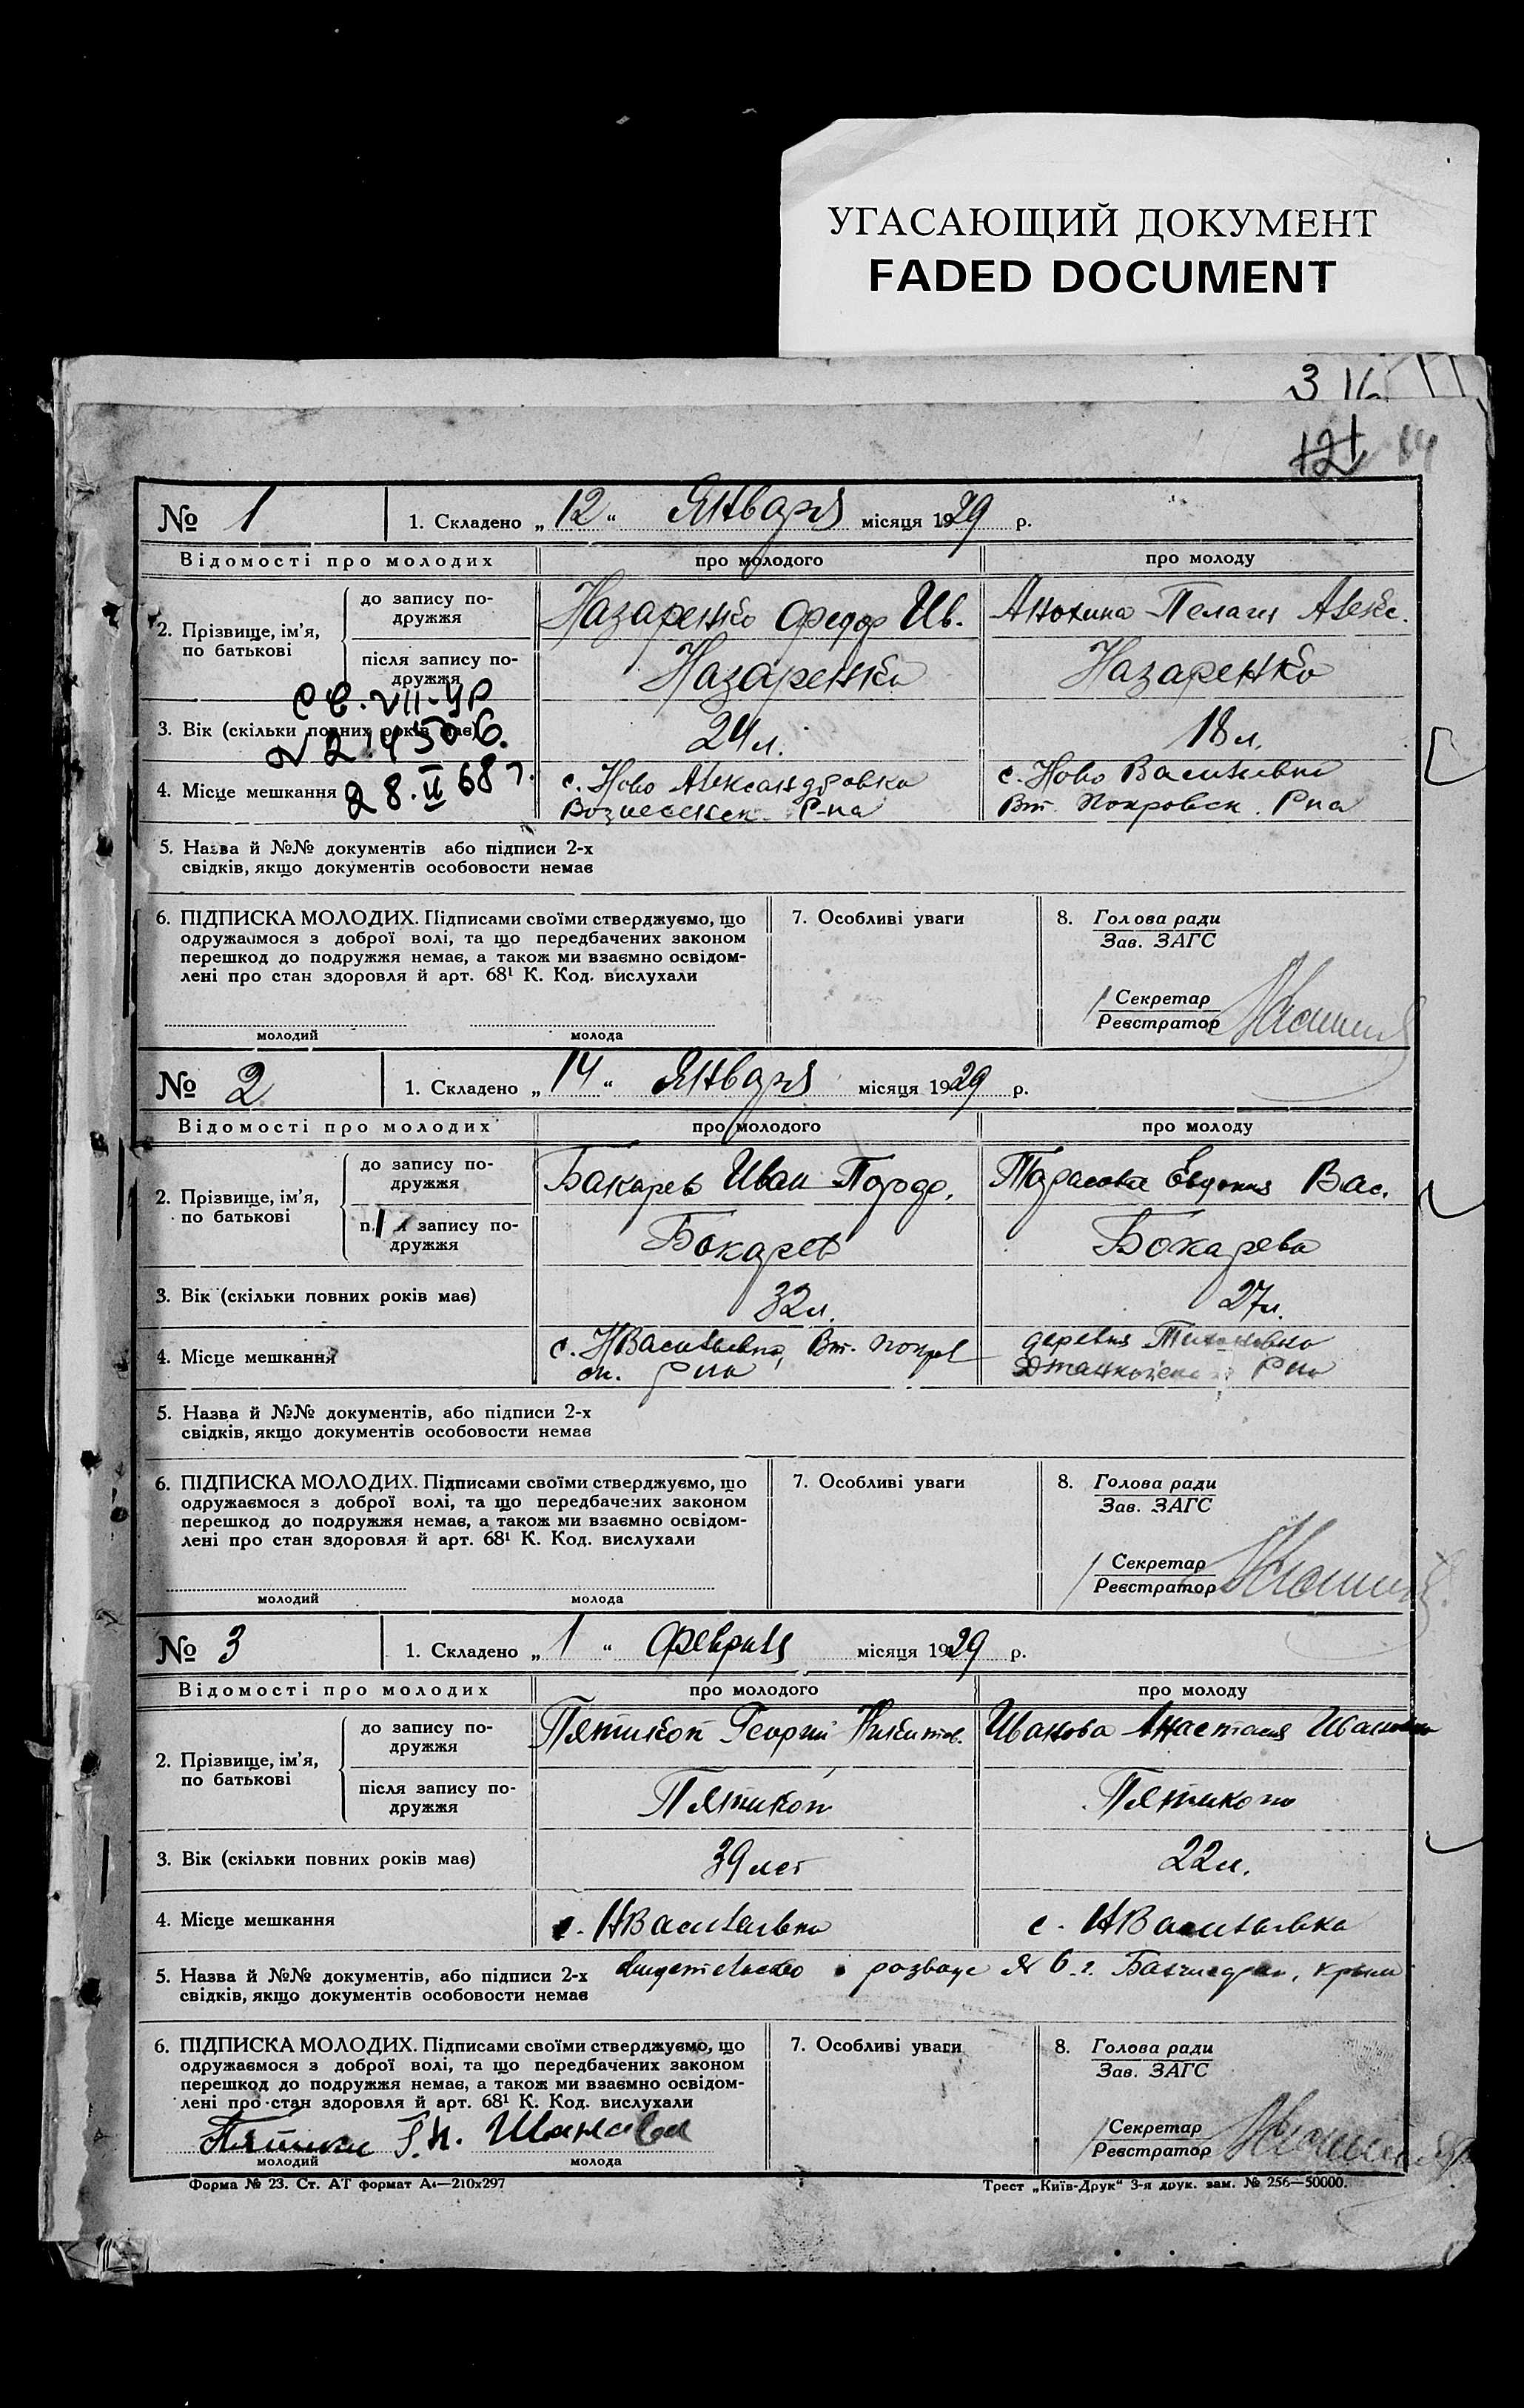 УГАСАЮЩИЙ ДОКУМЕНТ
FADED DOCUMENT
3 16
121 14
№ 1 1. Складено „ 12 “ Января місяця 1929 р.
Відомості про молодих про молодого про молоду
2. Прізвище, ім’я, по батькові
до запису подружжя Назаренко Федор Ив. Анохина Пелагия Алекс.
після запису подружжя Назаренко Назаренко
3. Вік (скільки повних років має) 24 л. 18 л.
св. VII-УР
№ 214506.
28.II 68 г.
4. Місце мешкання с. Ново Александровка с. Ново Васильевка
Вознесенск. Р-на Вт. Покровск. Р на
5. Назва й №№ документів або підписи 2-х
свідків, якщо документів особовости немає
6. ПІДПИСКА МОЛОДИХ. Підписами своїми стверджуємо, що
одружаємося з доброї волі, та що передбачених законом
перешкод до подружжя немає, а також ми взаємно освідом-
лені про стан здоровля й арт. 68¹ К. Код. вислухали
молодий молода
7. Особливі уваги
8. Голова ради
Зав. ЗАГС
Секретар
Реєстратор
№ 2 1. Складено „ 14 “ Января місяця 1929 р.
Відомості про молодих про молодого про молоду
2. Прізвище, ім’я, по батькові
до запису подружжя Бакарев Иван Тарасова Евдокия Вас.
п. я запису подружжя Бокарев Бокарева
3. Вік (скільки повних років має) 32 л. 27 л.
4. Місце мешкання с. НВасильевка, Вт. Покров деревня Тихоновка
ск. Р на Джанкойск Р на
5. Назва й №№ документів, або підписи 2-х
свідків, якщо документів особовости немає
6. ПІДПИСКА МОЛОДИХ. Підписами своїми стверджуємо, що
одружаємося з доброї волі, та що передбачених законом
перешкод до подружжя немає, а також ми взаємно освідом-
лені про стан здоровля й арт. 68¹ К. Код. вислухали
молодий молода
7. Особливі уваги
8. Голова ради
Зав. ЗАГС
Секретар
Реєстратор
№ 3 1. Складено „ 1 “ Февраля місяця 1929 р.
Відомості про молодих про молодого про молоду
2. Прізвище, ім’я, по батькові
до запису подружжя Пятикоп Георгий Никитов. Иванова Анастасия Ивановна
після запису подружжя Пятикоп Пятикоп
3. Вік (скільки повних років має) 39 лет 22 л.
4. Місце мешкання с. НВасильевка с. НВасильевка
5. Назва й №№ документів, або підписи 2-х свидетельство о розводе № 6 г. Бахчисарай, Крым
свідків, якщо документів особовости немає
6. ПІДПИСКА МОЛОДИХ. Підписами своїми стверджуємо, що
одружаємося з доброї волі, та що передбачених законом
перешкод до подружжя немає, а також ми взаємно освідом-
лені про стан здоровля й арт. 68¹ К. Код. вислухали
Г.Н. Иванова
молодий молода
7. Особливі уваги
8. Голова ради
Зав. ЗАГС
Секретар
Реєстратор
Форма № 23. Ст. АТ формат А4—210x297 Трест „Київ-Друк“ 3-я друк. зам. № 256—50000.